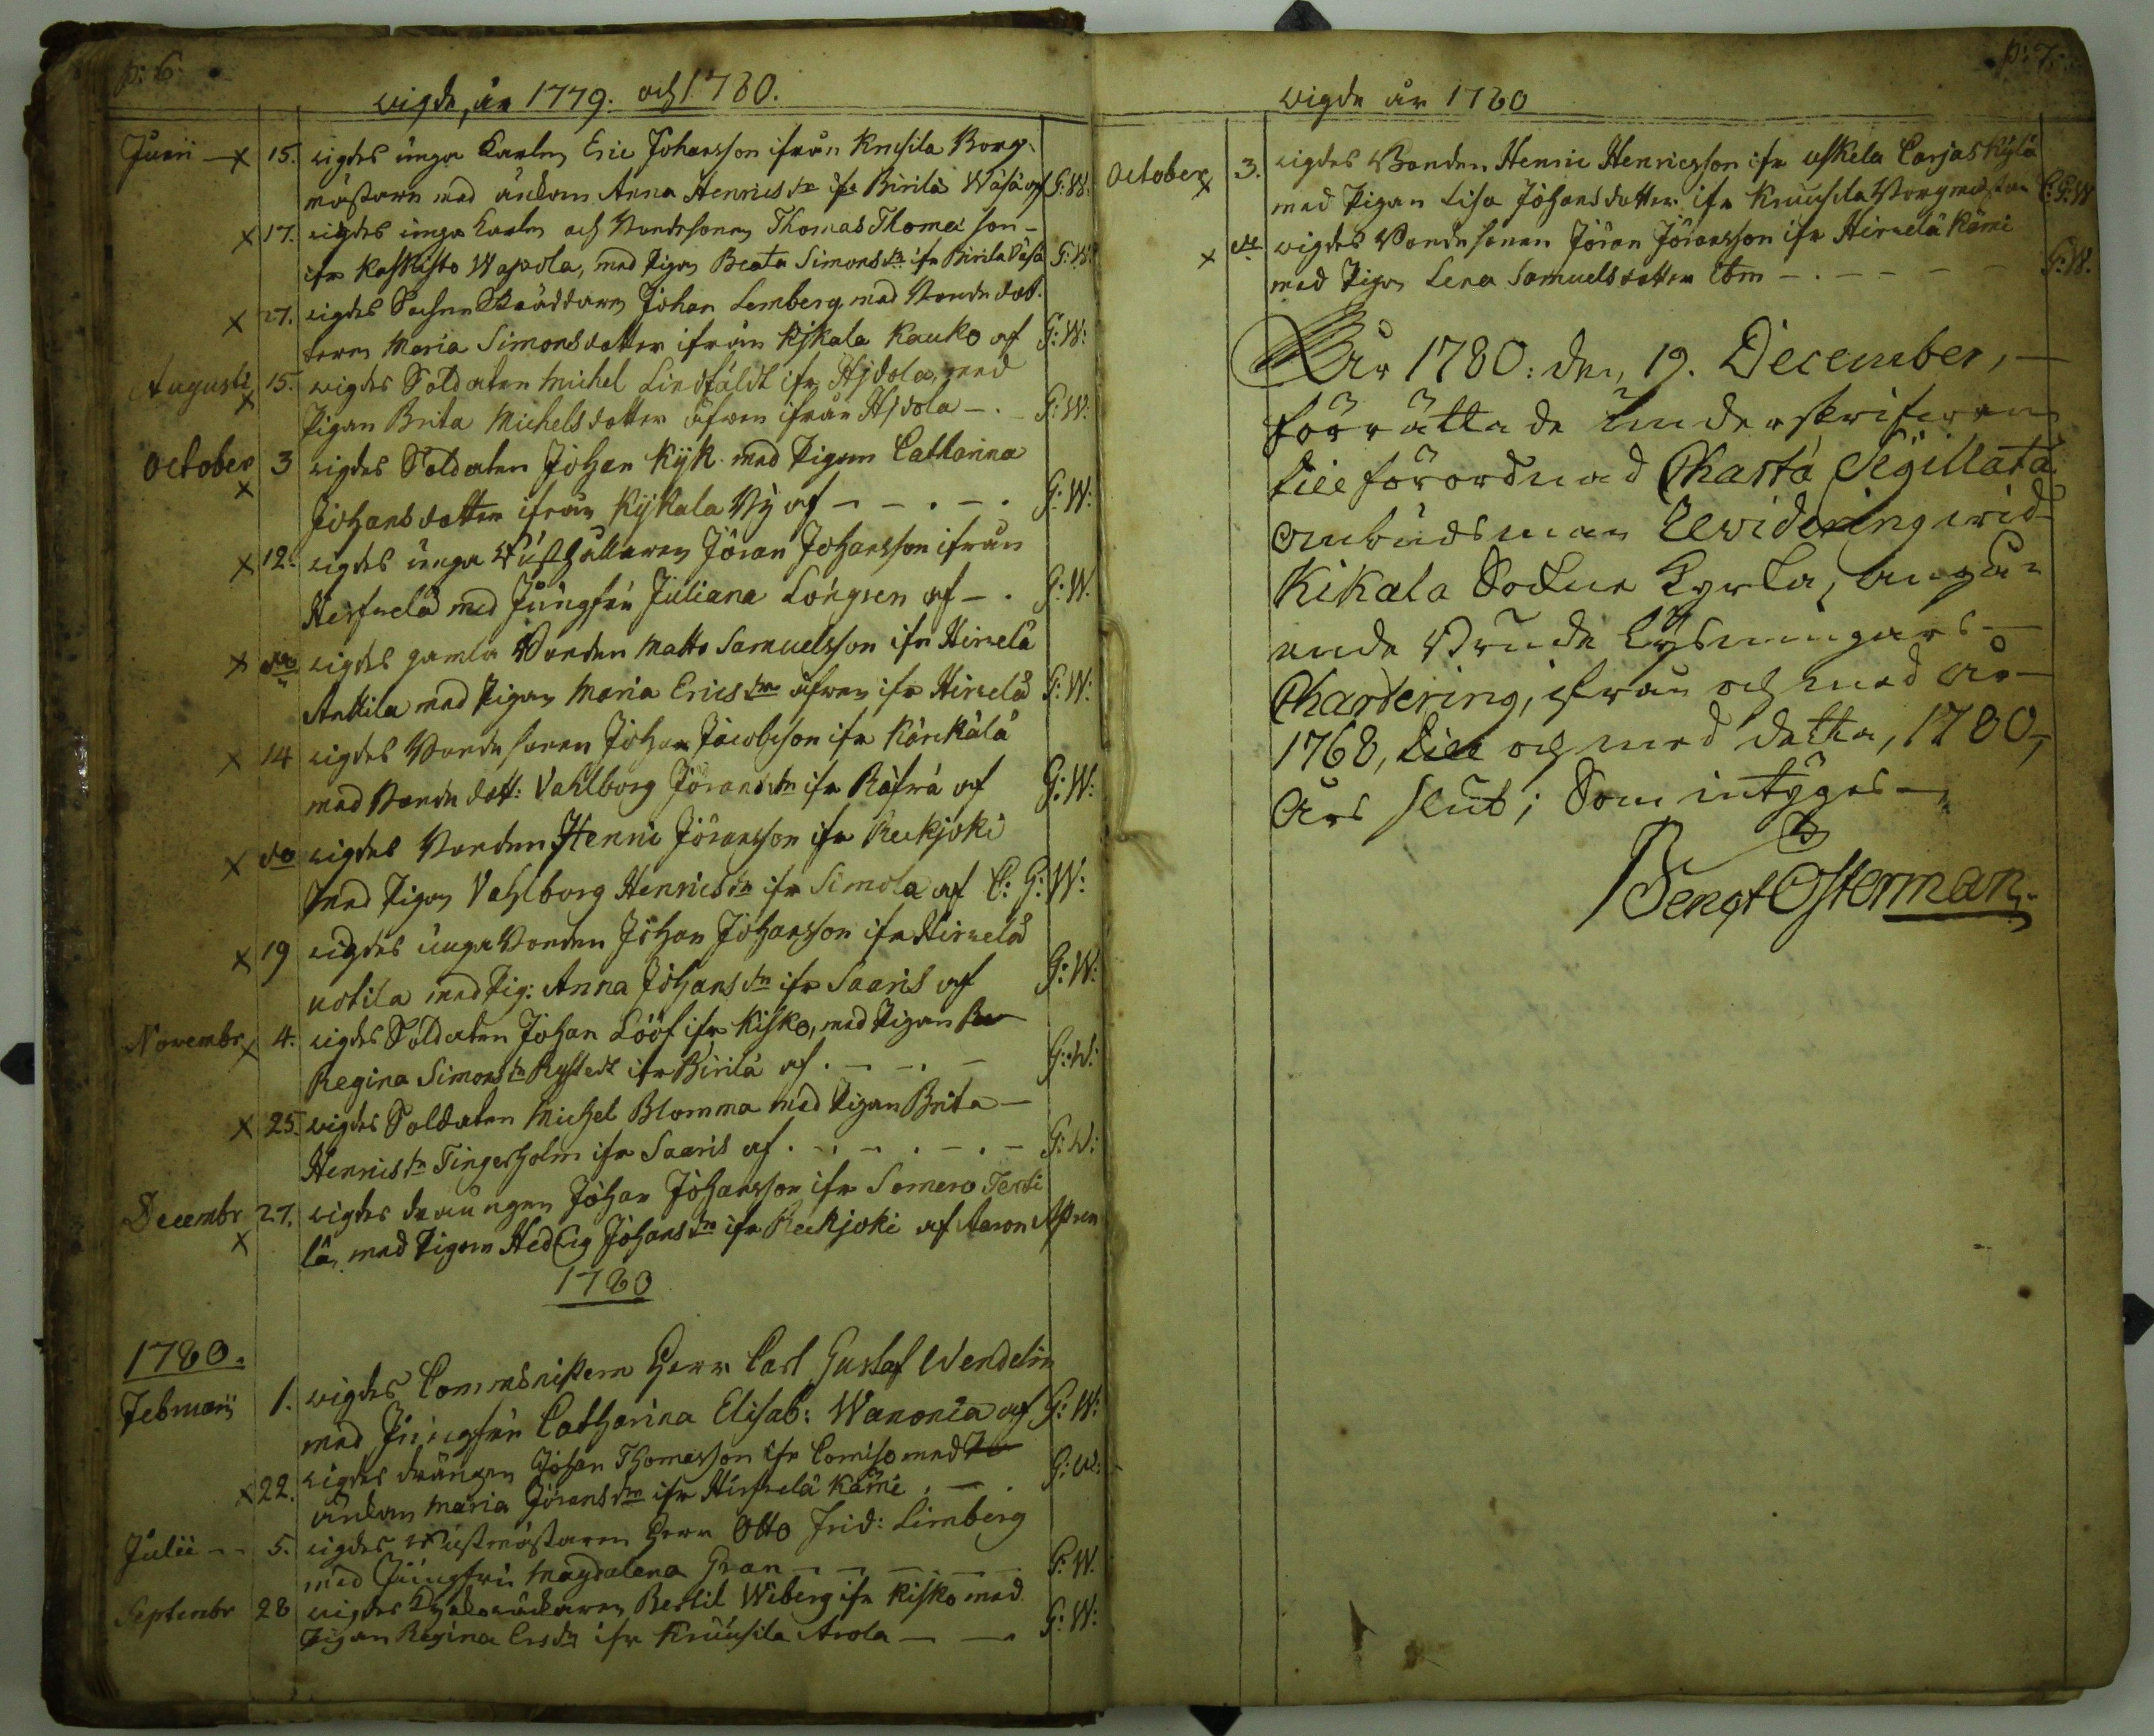 p: 6.
wigde, år 1779. och 1780.
Junii x 15. wigdes unga Karlen Eric Johansson ifrån Kruusila Borg-
mästars med änkan Anna Henricsdr ifr Pirilä Wäsä af G: W:
x 17. wigdes unga Karlen och Bondesonen Thomas Thomæ son -
ifr Kaskisto Wapola, med Pigan Beata Simonsdr ifr Pirilä Wäsä G: W:
x 27. wigdes Sochne Skräddaren Johan Lemberg med Bonde dot-
teren Maria Simonsdotter ifrån Kijkala Kauko af G: W:
Augusti x 15. wigdes Soldaten Michel Lindfäldt ifr Hjdola, med
Pigan Brita Michelsdotter äfwen ifrån Hjdola - . - G: W:
October x 3 wigdes Soldaten Johan Kijk med Pigan Catharina
Johansdotter ifrån Kijkala By af - - . - . G: W:
x 12. wigdes unga Jöran Johansson ifrån
Hirfwelä med Jungfru Juliana Lörgren af - . G: W.
x do wigdes gamla Bonden Matts Samuelsson ifr Hirwelä
Anttila med Pigan Maria Ericsdr äfwen ifr Hirwelä G: W:
x 14 wigdes Bondesonen Johan Jacobsson ifr Kärckälä
med Bonde dott: Vahlborg Jöransdr ifr Räfwä af G: W:
x do wigdes Bonden Henric Jöransson ifr Reekjoki
med Pigan Vahlborg Henricsdr ifr Simola af C: G: W:
x 19 wigdes unga Bonden Johan Johansson ifr Hirwelä
Uotila med Pig: Anna Johansdr ifr Saaris af G: W:
Novembr x 4. wigdes Soldaten Johan Lööf ifr Kisko, med Pigan
Regina Simonsdr Rystedt ifr Pirilä af . - - . - G: W:
x 25. wigdes Soldaten Michel Blomma med Pigan Brita -
Henricsdr Tingerholm ifr Saaris af . - . - . - . - G: W:
Decembr x 27. wigdes drängen Johan Johansson ifr Somero Tersi
lä, med Pigan Hedvig Johansdr ifr Reekjoki af Aaron
1780
1780.
Februarii 1. wigdes Comministern Herr Carl Gustaf Wendelin
med Jungfru Catharina Elisab: Wanonia af G: W:
x 22. wigdes drängen Johan Thomasson ifr Comiso med
änkan Maria Jöransdr ifr Hirfwelä Kämi . - . G: W:
Julii - - 5. wigdes Rustmästaren Herr Otto Frid: Limberg
med Jungfru Magdalena Gran - - - - - G: W.
Septembr 28 wigdes Bertil Wiberg ifr Kisko med
Pigan Regina Ersdr ifr Kruusila Arola - - G: W:
p: 7.
wigde år 1780
October x 3. wigdes Bonden Henric Henricsson ifr Uskela Carjaskylä
med Pigan Lisa Johansdotter ifr Kruusila Borgmästar C: G: W
x do wigdes Bondesonen Jöran Jöransson ifr Hirwelä Kämi
med Pigan Lena Samuelsdotter ibm - . - - - - G: W.
År 1780: den, 19. December, -
förrättade underskrifwen
till förordnad Charta Sigillata
ombudsman Revidering wid
Kikala Sockne Kyrka, angå-
ende Brude Lysningars -
Chartering, ifrån och med år -
1768, till och med detta, 1780,-
års slut; Som intygas -
Bengt Osterman.